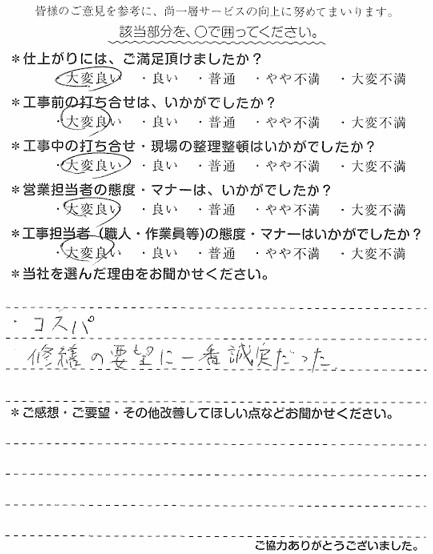 皆様のご意見を参考に、尚一層サービスの向上に努めてまいります。
該当部分を、〇で囲ってください。
*仕上がりには、ご満足頂けましたか?
・大変良い ・良い ・普通 ・やや不満 ・大変不満
*工事前の打ち合せは、いかがでしたか?
・大変良い ・良い ・普通 ・やや不満 ・大変不満
*工事中の打ち合せ・現場の整理整頓はいかがでしたか?
・大変良い ・良い ・普通 ・やや不満 ・大変不満
*営業担当者の態度・マナーは、いかがでしたか?
・大変良い ・良い ・普通 ・やや不満 ・大変不満
*工事担当者(職人・作業員等)の態度・マナーはいかがでしたか?
・大変良い ・良い ・普通 ・やや不満 ・大変不満
*当社を選んだ理由をお聞かせください。
・コスパ
修繕の要望に一番誠実だった。
*ご感想・ご要望・その他改善してほしい点などお聞かせください。
ご協力ありがとうございました。